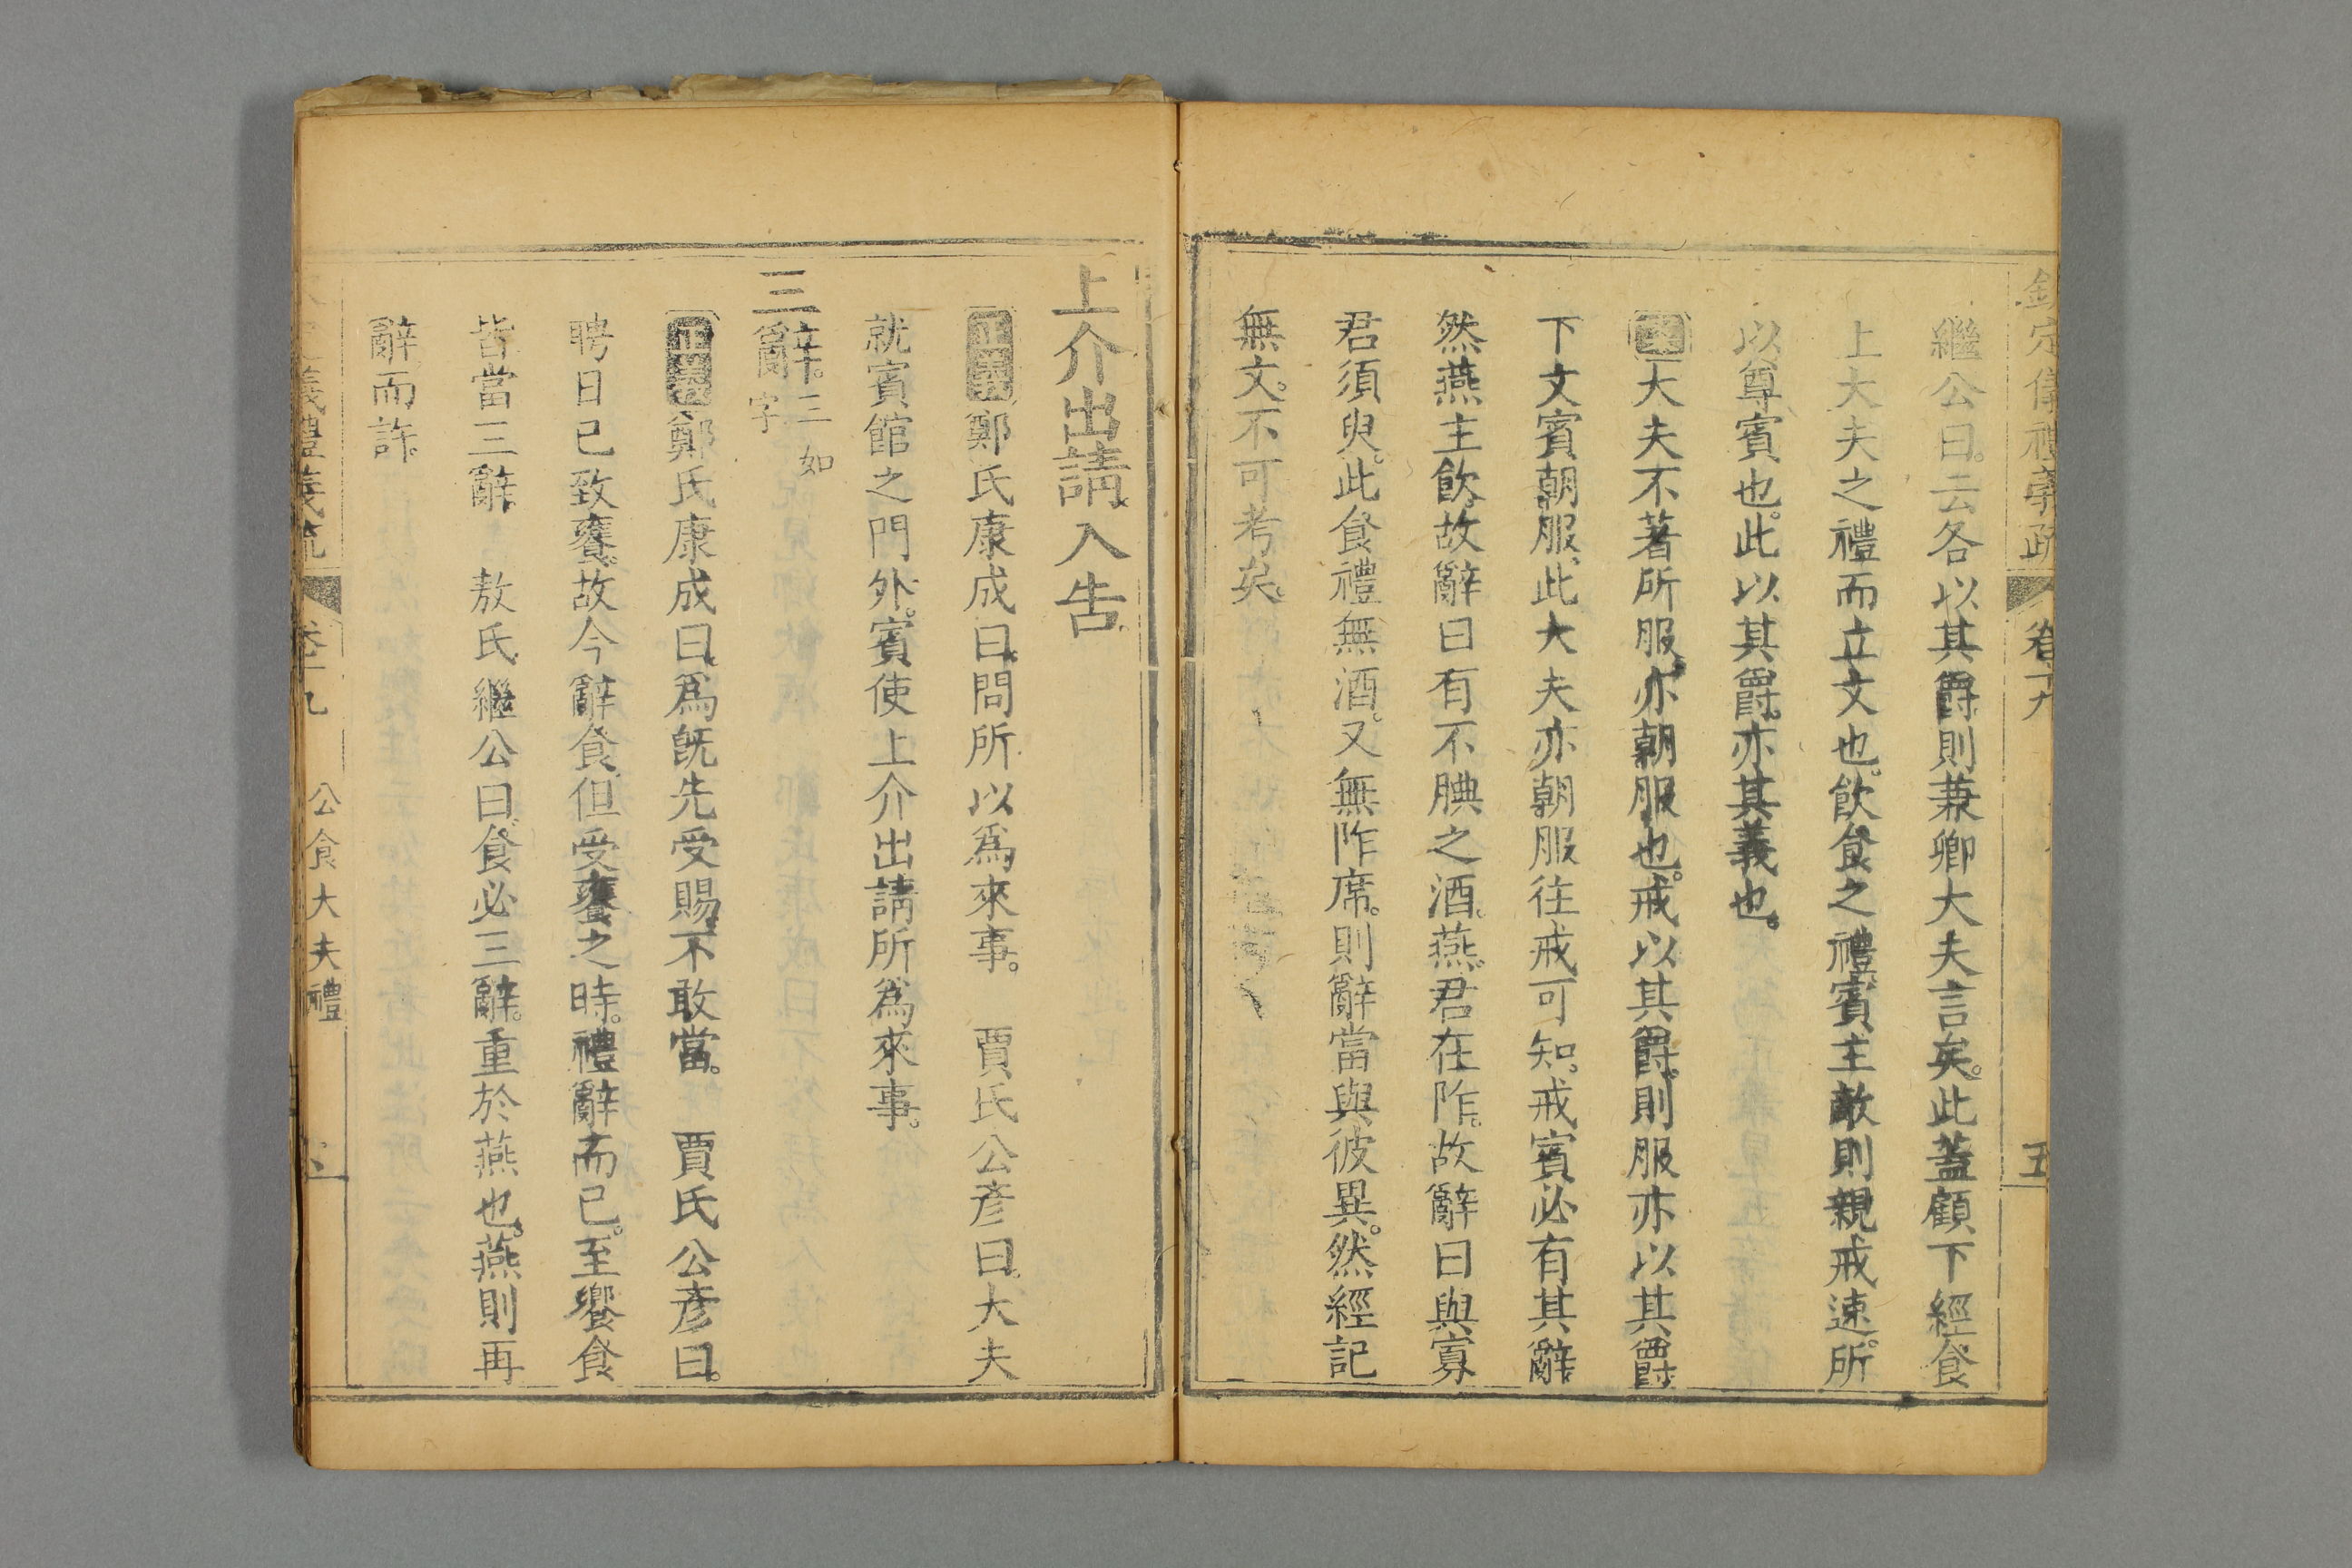 欽定儀禮義疏 卷十九 五
繼公曰。云各以其爵。則兼卿大夫言矣。此蓋顧下經食
上大夫之禮而立文也。飲食之禮。賓主敵則親戒速。所
以尊賓也。此以其爵。亦其義也。
案大夫不著所服。亦朝服也。戒以其爵。則服亦以其爵
下文賓朝服。此大夫亦朝服往戒可知。戒賓必有其辭
然燕主飲。故辭曰有不腆之酒。燕。君在阼。故辭曰與寡
君須臾。此食禮無酒。又無阼席。則辭當與彼異。然經記
無文。不可考矣。
上介出請入告
正義鄭氏康成曰。問所以為來事。 賈氏公彥曰。大夫
就賓館之門外。賓使上介出請所為來事。
三辭。三如字
正義鄭氏康成曰。為旣先受賜。不敢當。 賈氏公彥曰。
聘日已致饔。故今辭食。但受饔之時。禮辭而已。至饗食
皆當三辭。 敖氏繼公曰。食必三辭。重於燕也。燕則再
辭而許。
義禮義疏 卷十九 公食大夫禮